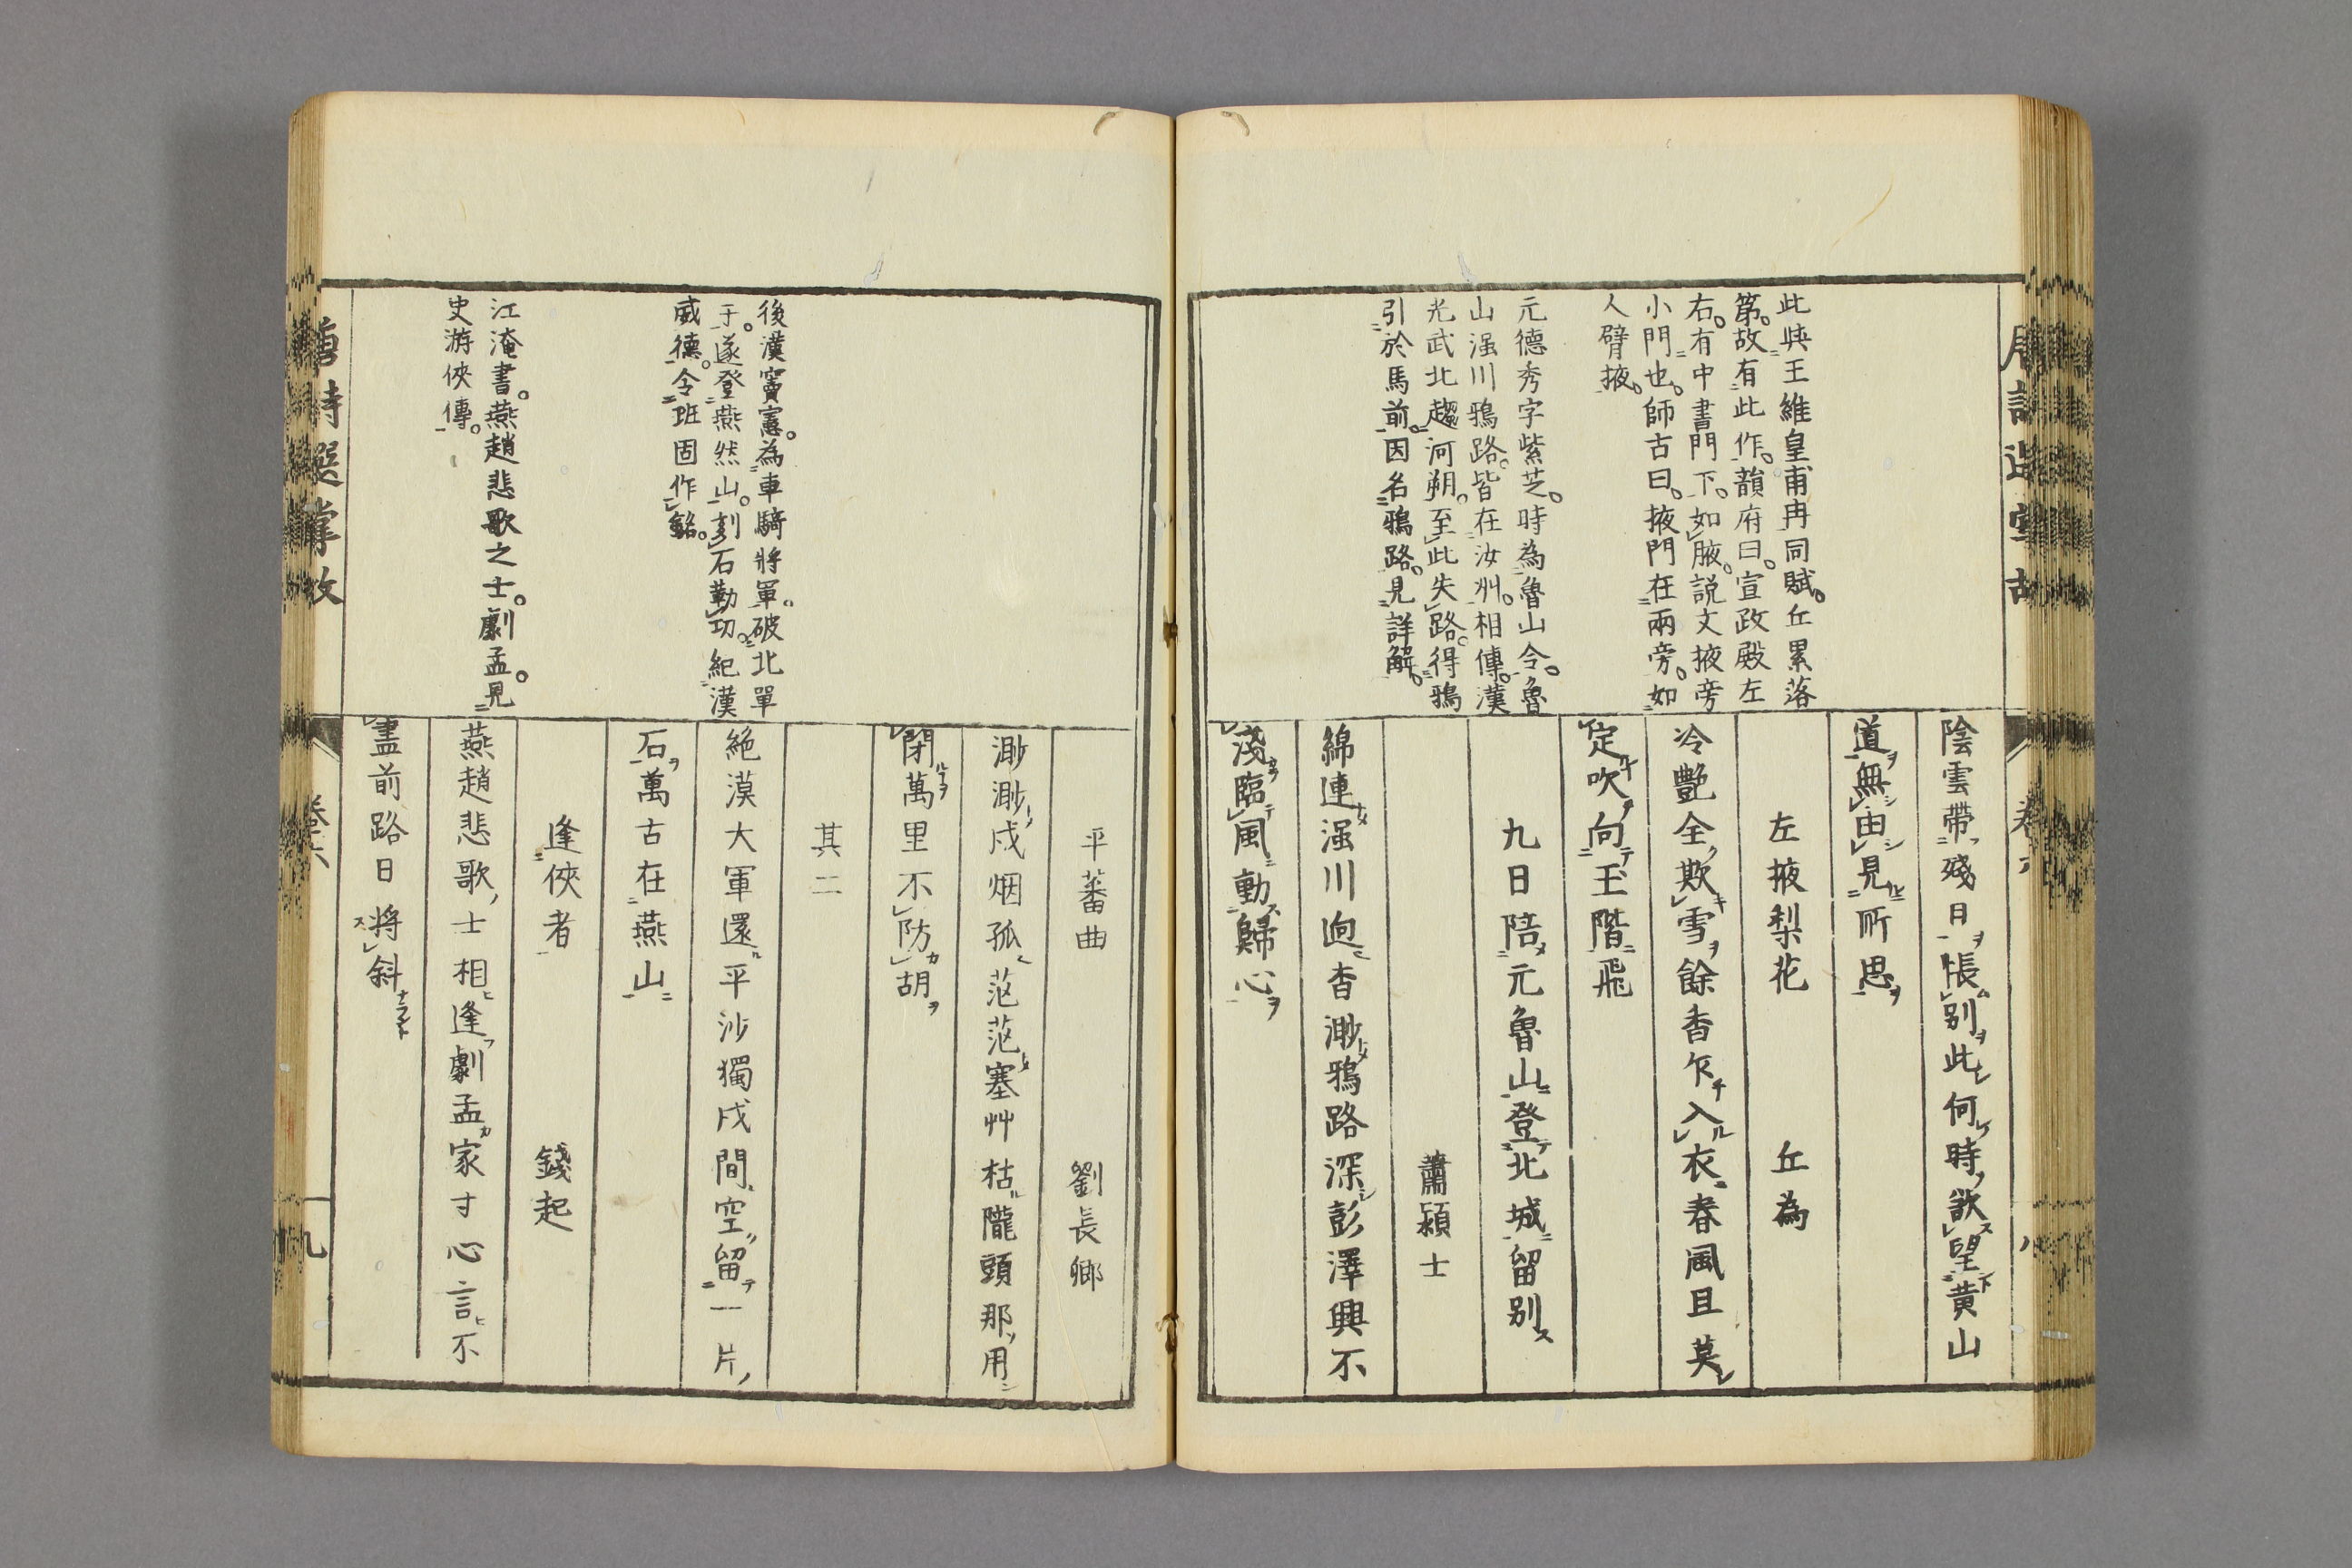 此與王維皇甫冉同賦。丘累落
第。故有此作。韻府曰。宣政殿左
右。有中書門下。如腋。說文掖旁
小門也。師古曰。掖門在兩旁。如
人臂掖。
元德秀字紫芝。時為魯山令。魯
山滍川鴉路。皆在汝州。相傳。漢
光武北趨河朔。至此失路。得鴉
引於馬前。因名鴉路。見詳解。
陰雲帶殘日悵別此何時欲望黃山
道無由見所思
左掖梨花 丘為
冷艷全欺雪餘香乍入衣春風且莫
定吹向玉階飛
九日陪元魯山登北城留別
蕭穎士
綿連滍川逈杳渺鴉路深彭澤興不
淺臨風動歸心
後漢竇憲。為車騎將軍。破北單
于。遂登燕然山。刻石勒功。紀漢
威德。令班固作銘。
江淹書。燕趙悲歌之士。劇孟。見
史游俠傳。
平蕃曲 劉長卿
渺渺戍烟孤茫茫塞艸枯隴頭那用
閉萬里不防胡
其二
絕漠大軍還平沙獨戍間空留一片
石萬古在燕山
逢俠者 錢起
燕趙悲歌士相逢劇孟家寸心言不
盡前路日將斜
唐詩選掌故
卷六
九